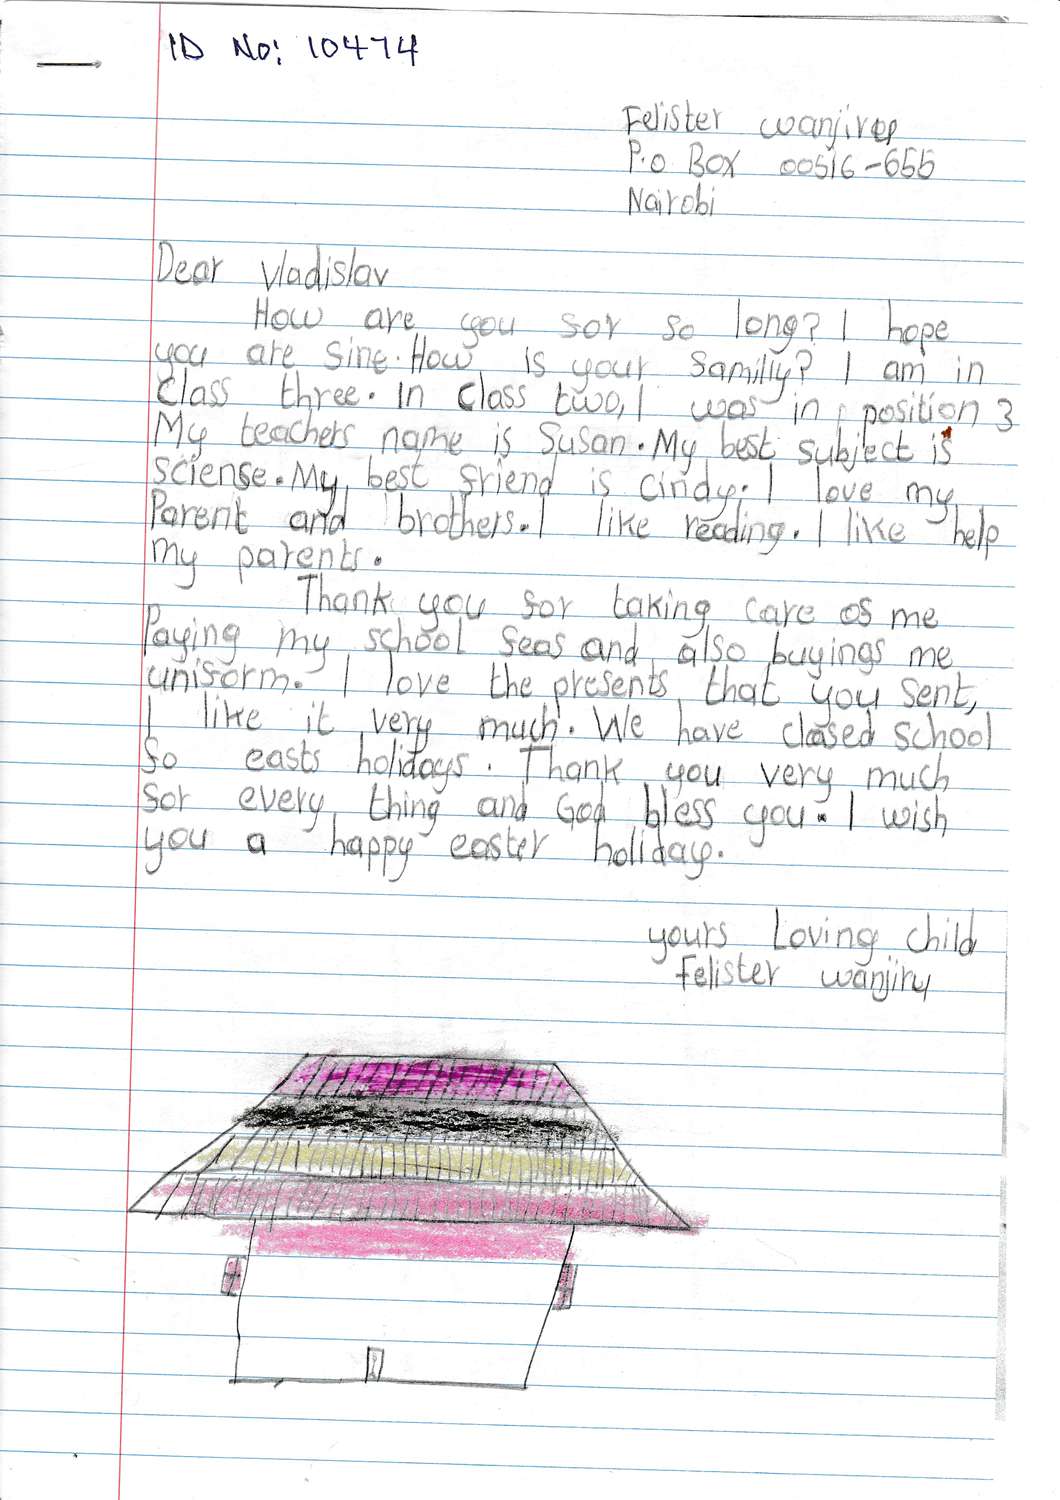 ID No: 10474
Felister
P.o Box 00516-655
Nairobi
Dear Vladislav
How are you sor so long? I hope
you are sine. How is your samiliy? I am in
Class three. In class two, I was in position 3
My teachers name is Susan. My best subject is
sciense. My best sriend is cindy. I love my
Parent and brothers. I like reading. I like help
my parents.
Thank you sor taking care os me
Paying my school seas and also buyings me
unisorm. I love the presents that you sent,
I like it very much. We have closed school
so easts holidays. Thank you very much
sor every thing and God bless you. I wish
you a happy easter holiday.
yours Loving child
Felister wanjiry